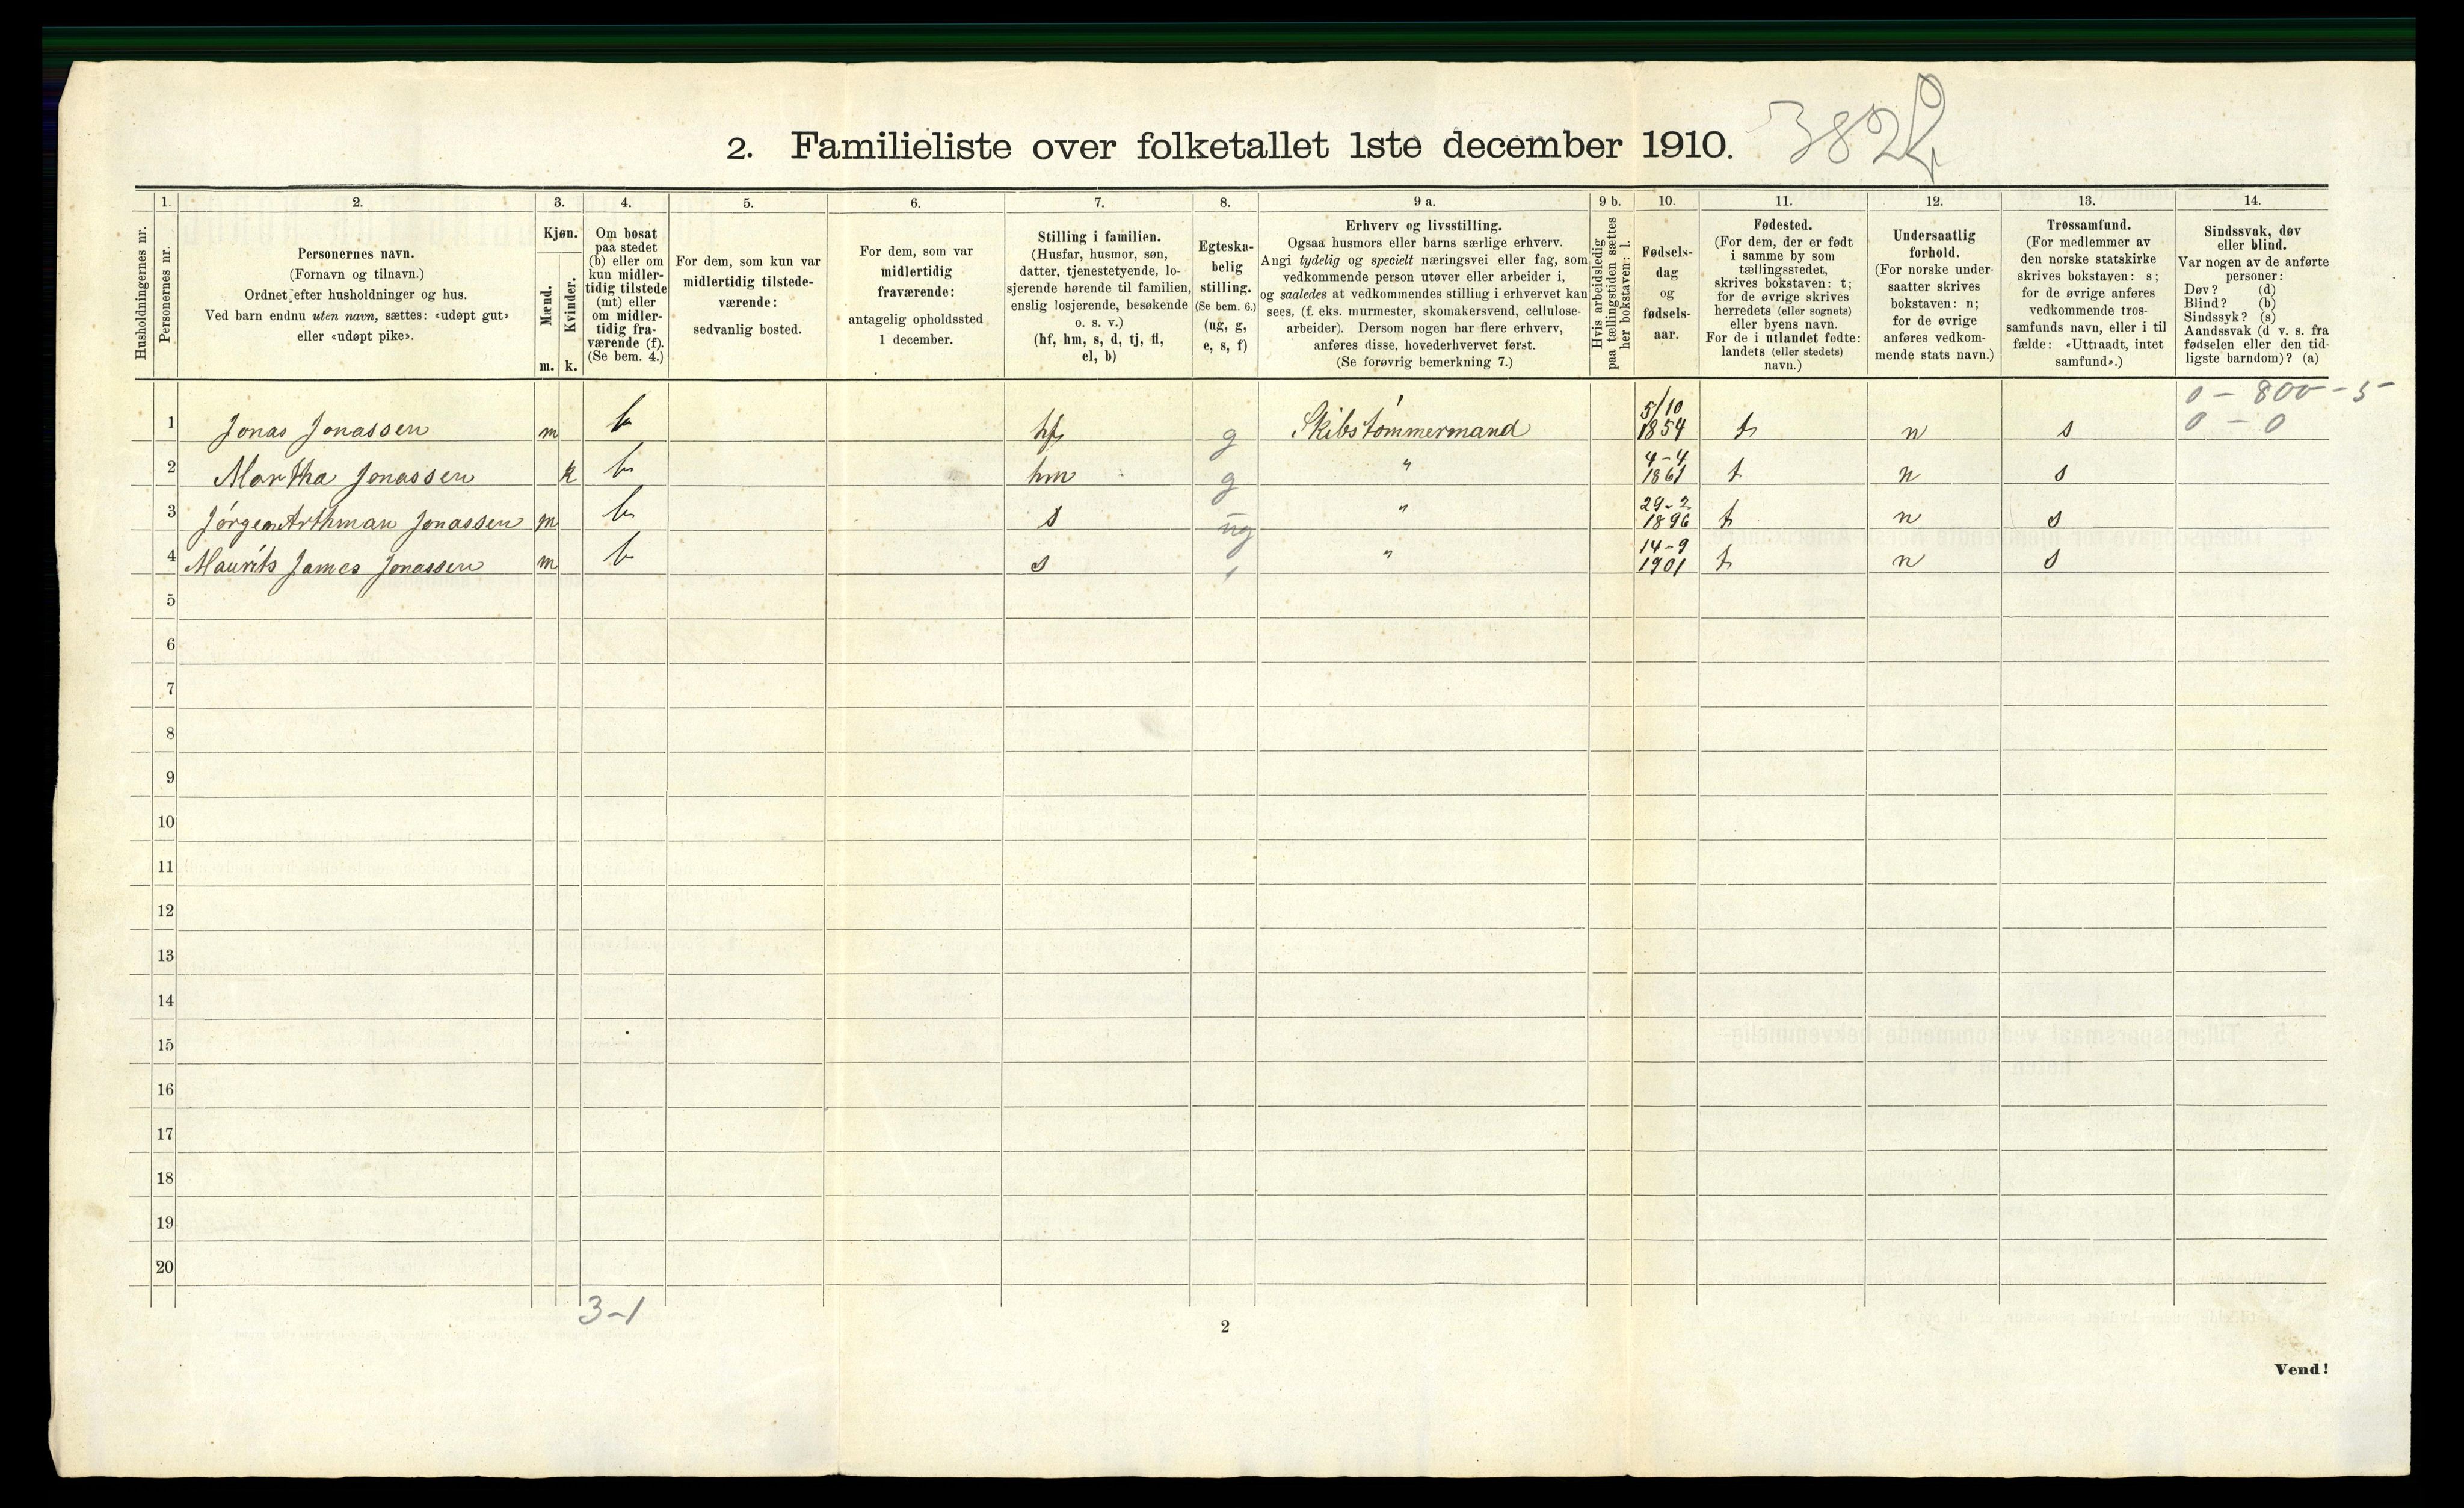 2. Familieliste over folketallet 1ste december 1910. 382
Husholdningernes nr.
1.
Personernes nr.
2.
Personernes navn.
(Fornavn og tilnavn.)
Ordnet efter husholdninger og hus.
Ved barn endnu uten navn, sættes: «udøpt gut»
eller «udøpt pike».
3.
Kjøn.
Mænd.
m.
Kvinder.
k.
4.
Om bosat
paa stedet
(b) eller om
kun midler-
tidig tilstede
(mt) eller
om midler-
tidig fra-
værende (f).
(Se bem. 4.)
5.
For dem, som kun var
midlertidig tilstede-
værende:
sedvanlig bosted.
6.
For dem, som var
midlertidig
fraværende:
antagelig opholdssted
1 december.
7.
Stilling i familien.
(Husfar, husmor, søn,
datter, tjenestetyende, lo-
sjerende hørende til familien,
enslig losjerende, besøkende
o. s. v.)
(hf, hm, s, d, tj, fl,
el, b)
8.
Egteska-
belig
stilling.
(Se bem. 6.)
(ug, g,
e, s, f)
9 a.
Erhverv og livsstilling.
Ogsaa husmors eller barns særlige erhverv.
Angi tydelig og specielt næringsvei eller fag, som
vedkommende person utøver eller arbeider i,
og saaledes at vedkommendes stilling i erhvervet kan
sees, (f. eks. murmester, skomakersvend, cellulose-
arbeider). Dersom nogen har flere erhverv,
anføres disse, hovederhvervet først.
(Se forøvrig bemerkning 7.)
9 b.
Hvis arbeidsledig
paa tællingstiden sættes
her bokstaven: l.
10.
Fødsels-
dag
og
fødsels-
aar.
11.
Fødested.
(For dem, der er født
i samme by som
tællingsstedet,
skrives bokstaven: t;
for de øvrige skrives
herredets (eller sognets)
eller byens navn.
For de i utlandet fødte:
landets (eller stedets)
navn.)
12.
Undersaatlig
forhold.
(For norske under-
saatter skrives
bokstaven: n;
for de øvrige
anføres vedkom-
mende stats navn.)
13.
Trossamfund.
(For medlemmer av
den norske statskirke
skrives bokstaven: s;
for de øvrige anføres
vedkommende tros-
samfunds navn, eller i til
fælde: «Uttraadt, intet
samfund».)
14.
Sindssvak, døv
eller blind.
Var nogen av de anførte
personer:
Døv? (d)
Blind? (b)
Sindssyk? (s)
Aandssvak (d v. s. fra
fødselen eller den tid-
ligste barndom)? (a)
0 - 800 - 5
0 - 0
1 Jonas Jonassen m b hf g Skibstømmermand 5/10 1854 t n s
2 Martha Jonassen k b hm g " 4-4 1861 t n s
3 Jørgen Arthman Jonassen m b s ug " 29-2 1896 t n s
4 Maurits James Jonassen m b s " 14-9 1901 t n s
5
6
7
8
9
10
11
12
13
14
15
16
17
18
19
20
3-1
2
Vend!